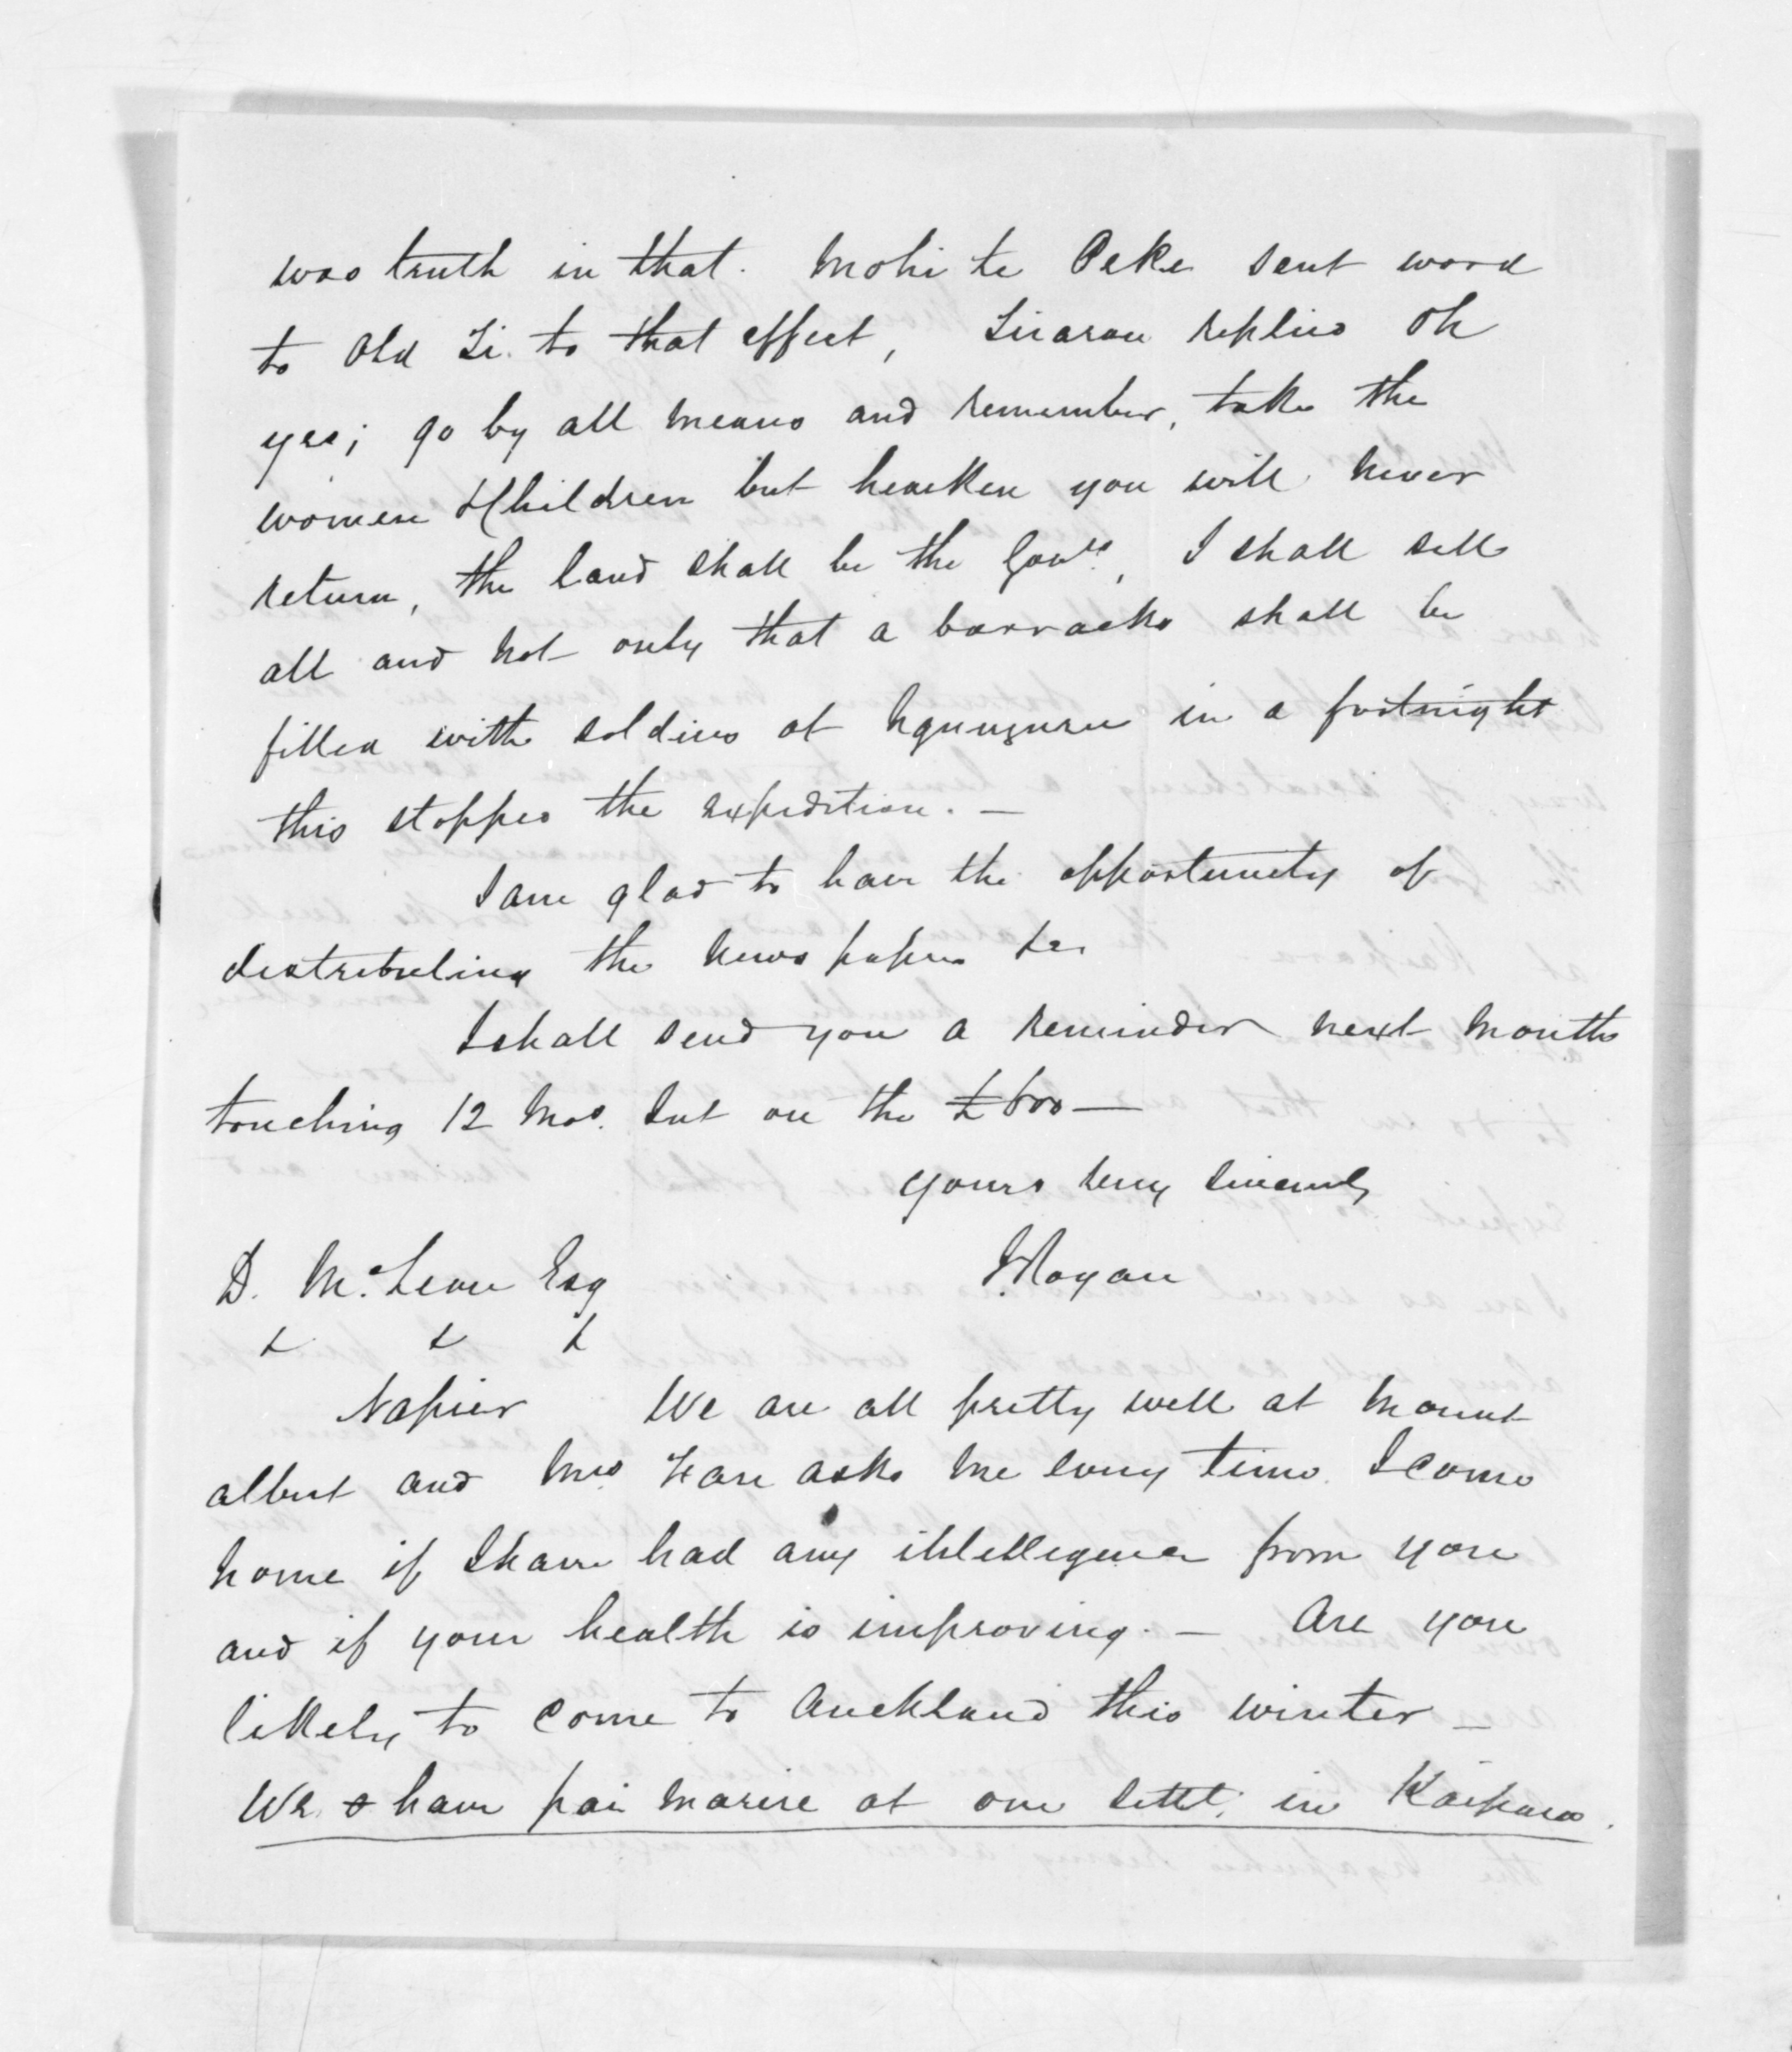 was truth in that. Mohi te Peke sent word
to Old Ti. to that effect, Tirarau replies Oh
yes; go by all means and remember, take the
women & children but hearken you will never
return, the land shall be the Govts, I shall sell
all and not only that a barracks shall be
filled with soldiers at Ngunguru in a fortnight
this stopped the expedition. —
I am glad to have the opportunity of
distributing the news papers &c
I shall send you a reminder next month
touching 12 Mos. Int on the £600 —
yours very sincerely
D. McLean Esq J Rogan
& & &
Napier We are all pretty well at Mount
albert and Mrs asks me every time I come
home if I have had any intelligence from you
and if your health is improving. — Are you
likely to come to Auckland this winter —
We have pai marire at one settt. in Kaipara.